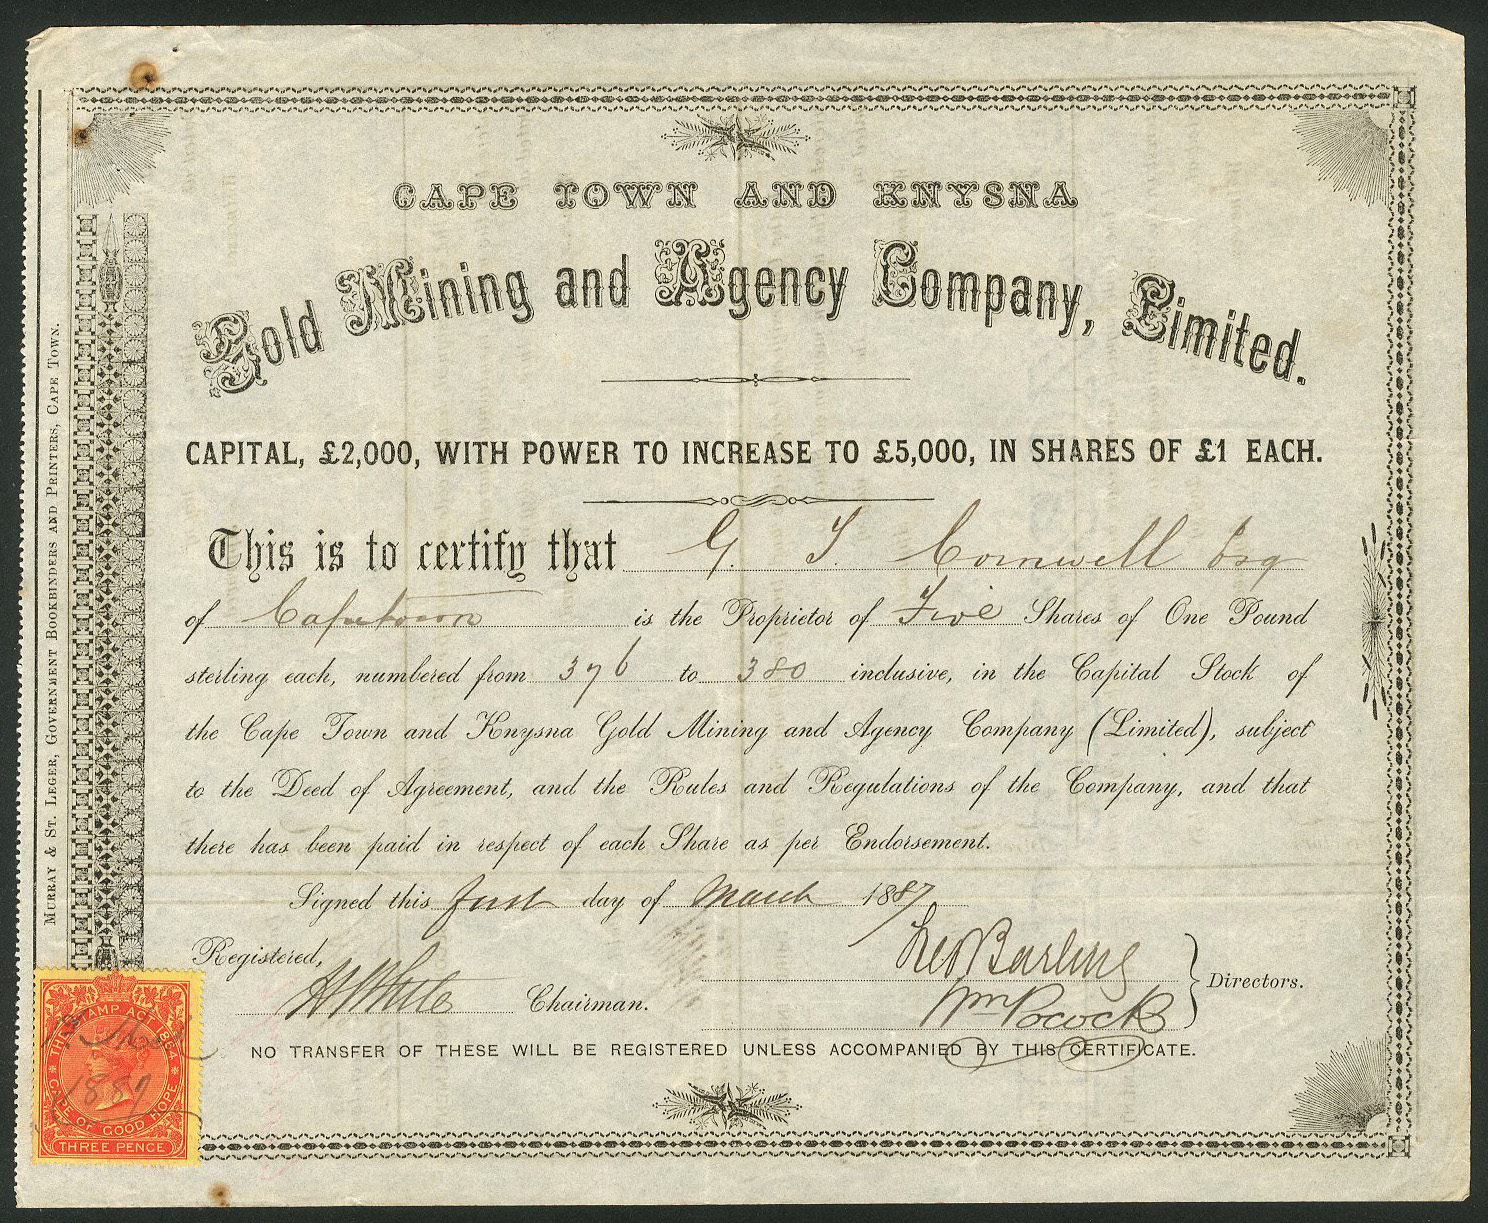 CAPE TOWN AND KNYSNA
Gold Mining and Agency Company, Limited.
CAPITAL, £2,000, WITH POWER TO INCREASE TO £5,000, IN SHARES OF £1 EACH.
This is to certify that G. T. Cornwell Esq
of Capetown is the Proprietor of Five Shares of One Pound
sterling each, numbered from 376 to 380 inclusive, in the Capital Stock of
the Cape Town and Knysna Gold Mining and Agency Company (Limited), subject
to the Deed of Agreement, and the Rules and Regulations of the Company, and that
there has been paid in respect of each Share as per Endorsement.
Signed this first day of March 1887
Registered,
Chairman.
Geo Barling
Wm Pocock
Directors.
NO TRANSFER OF THESE WILL BE REGISTERED UNLESS ACCOMPANIED BY THIS CERTIFICATE.
MURRAY & ST. LEGER, GOVERNMENT BOOKBINDERS AND PRINTERS, CAPE TOWN.
THE STAMP ACT 1884
1887
CAPE OF GOOD HOPE
THREE PENCE